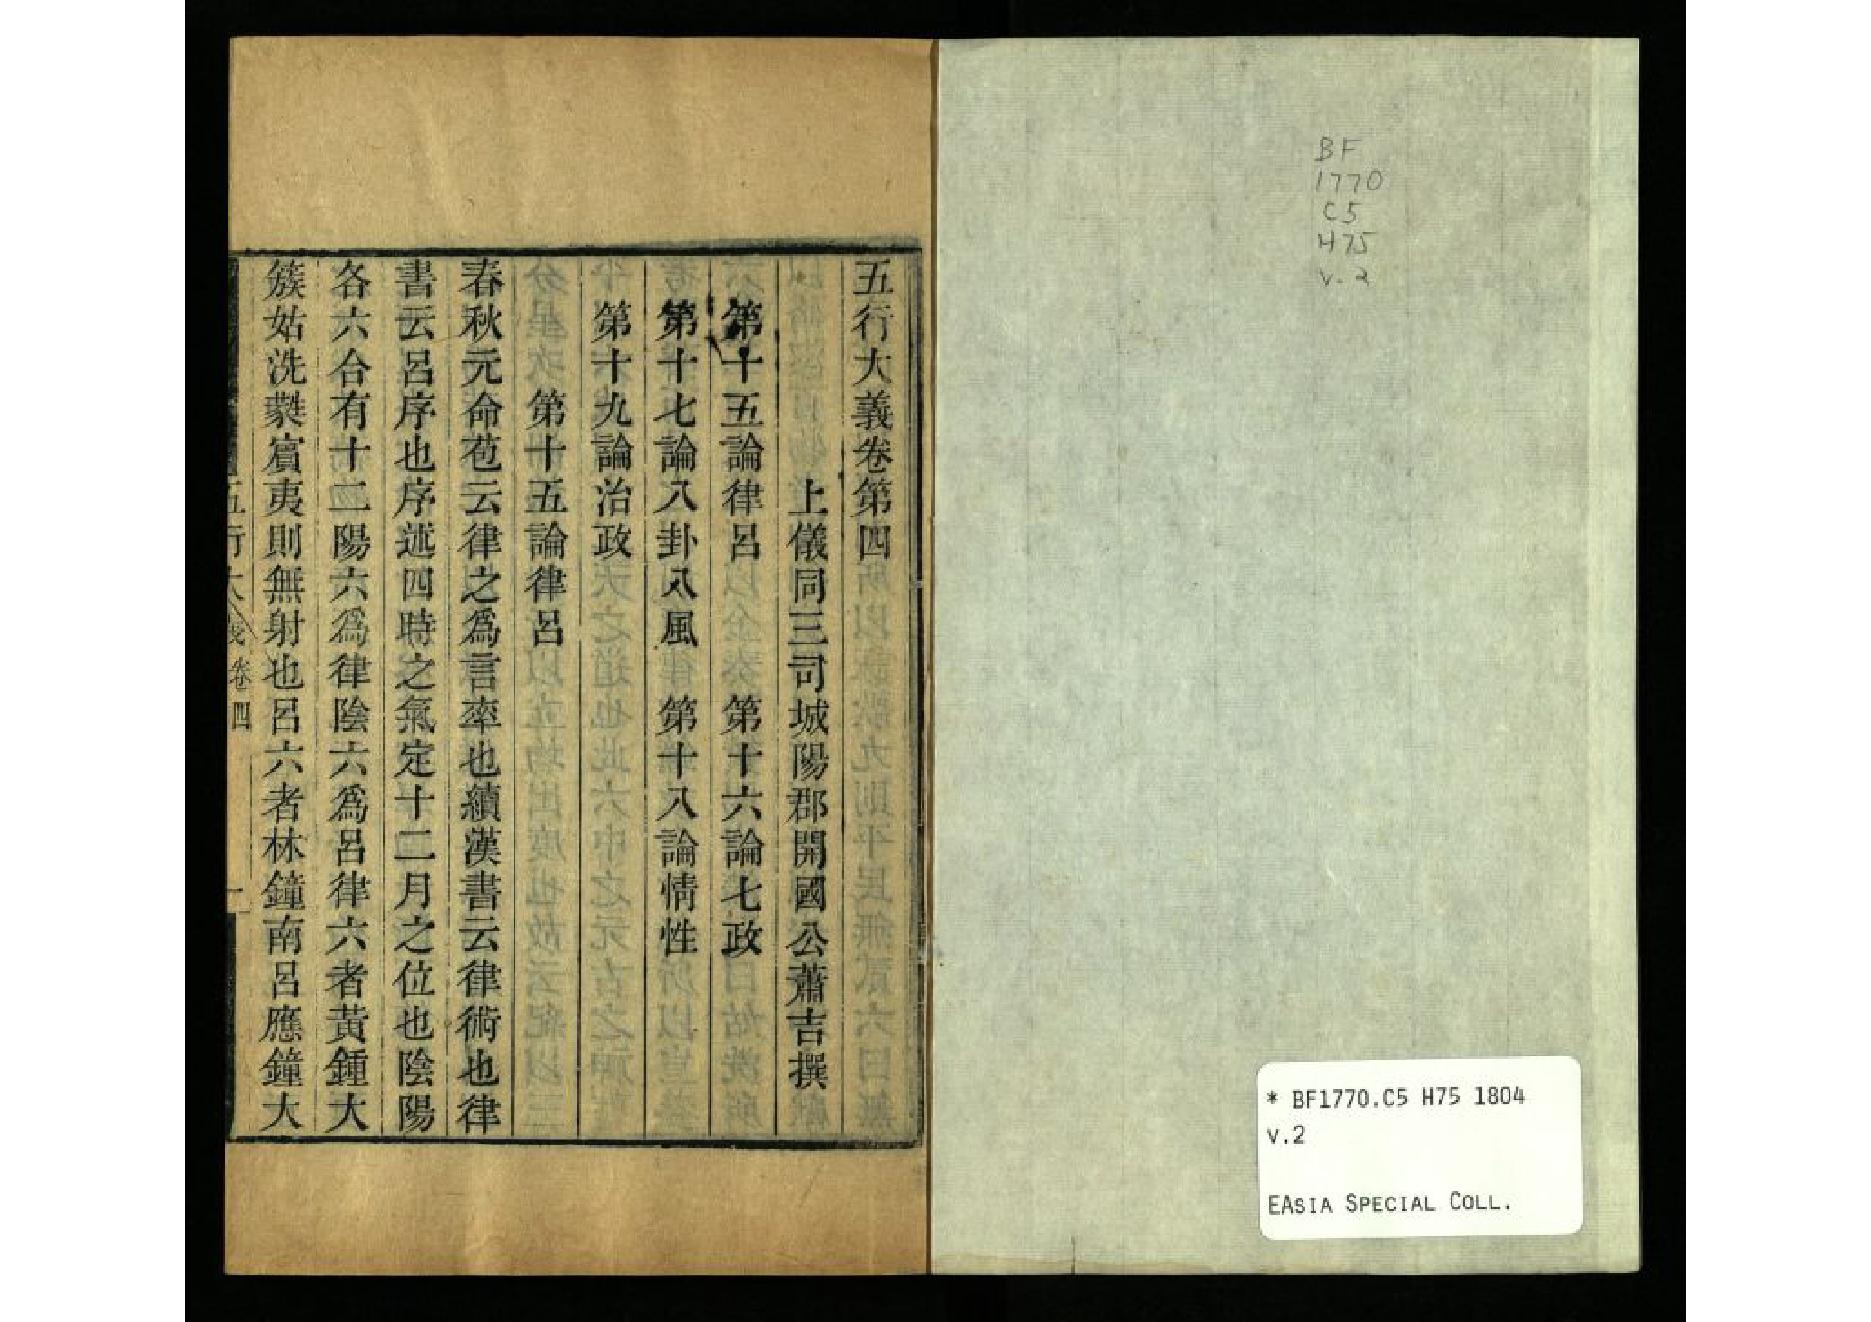 BF
1770
C5
H75
v.2
* BF1770.C5 H75 1804
v.2
EASIA SPECIAL COLL.
五行大義卷第四
上儀同三司城陽郡開國公蕭吉撰
第十五論律呂 第十六論七政
第十七論八卦八風 第十八論情性
第十九論治政
第十五論律呂
春秋元命苞云律之爲言率也續漢書云律術也律
書云呂序也序述四時之氣定十二月之位也陰陽
各六合有十二陽六爲律陰六爲呂律六者黃鍾大
簇姑洗蕤賓夷則無射也呂六者林鐘南呂應鐘大
五行大義卷四 一